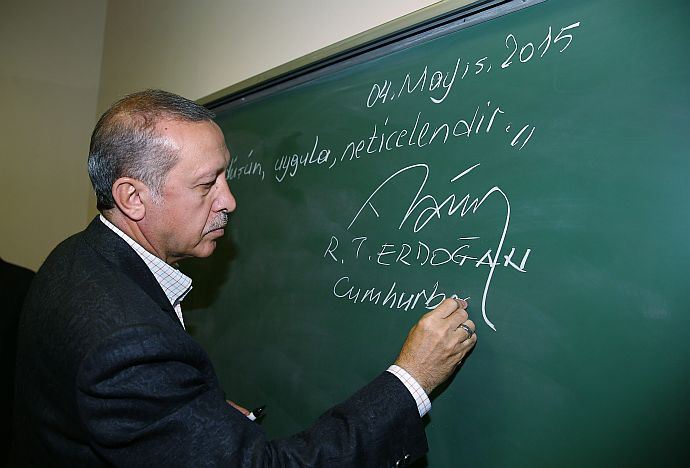 04. Mayıs. 2015
düşün, uygula, neticelendir..."
R. T. ERDOĞAN
Cumhurba